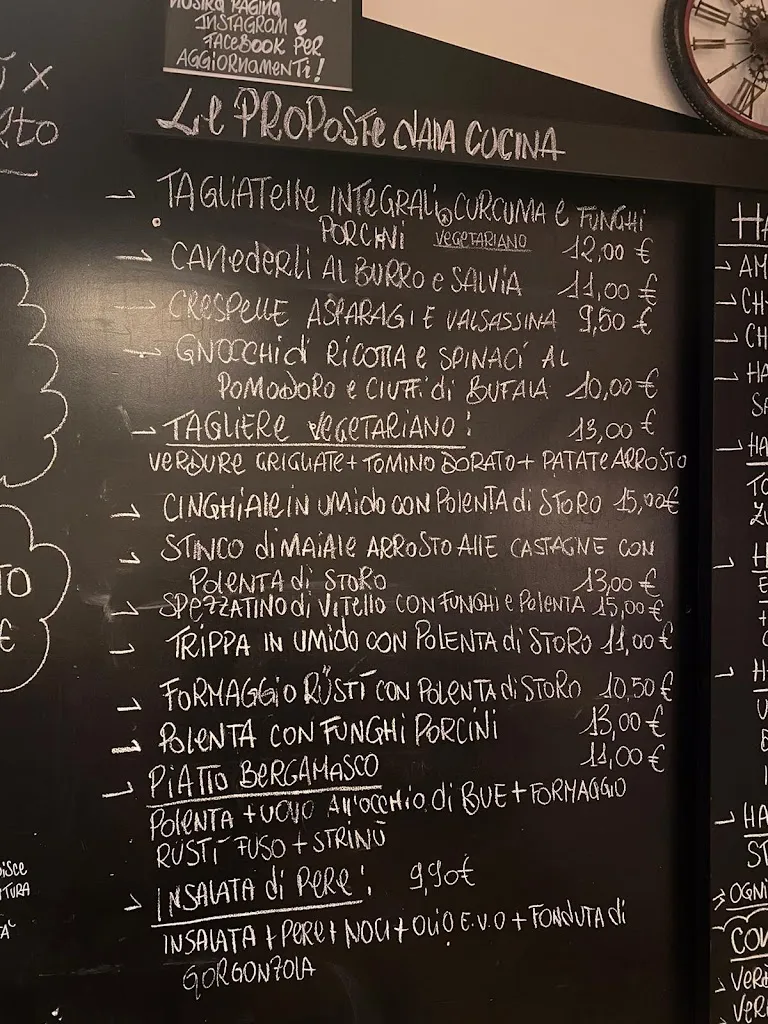 NOSTRA PAGINA
INSTAGRAM e
FACEBOOK PER
AGGIORNAMENTI!
Le PROPOSTE dALLA CUCINA
TAGLIATELLE INTEGRALI, CURCUMA e FUNGHI
PORCINI VEGETARIANO 12,00 €
CANEDERLI AL BURRO e SALVIA 11,00 €
CRESPELLE ASPARAGI E VALSASSINA 9,50 €
GNOCCHI di RICOTTA e SPINACI AL
POMODORO e CIUFF. di BUFALA 10,00 €
TAGLIERE VEGETARIANO! 13,00 €
VERDURE GRIGLIATE + TOMINO DORATO + PATATE ARROSTO
CINGHIALE IN UMIDO CON POLENTA di STORO 15,00€
STINCO di MAIALE ARROSTO ALLE CASTAGNE CON
POLENTA di STORO 13,00 €
SPEZZATINO di VITELLO CON FUNGHI e POLENTA 15,00€
TRIPPA IN UMIDO CON POLENTA di STORO 11,00€
FORMAGGIO RÜSTÍ CON POLENTA di STORO 10,50 €
POLENTA CON FUNGHI PORCINI 13,00 €
PIATTO BERGAMASCO 11,00 €
POLENTA + UOVO ALL'OCCHIO di BUE + FORMAGGIO
RUSTÍ FUSO + STRINÙ
INSALATA di PERE! 9,90€
INSALATA + PERE + NOCI + OLIO E.V.O + FONDUTA di
GORGONZOLA
OGNI